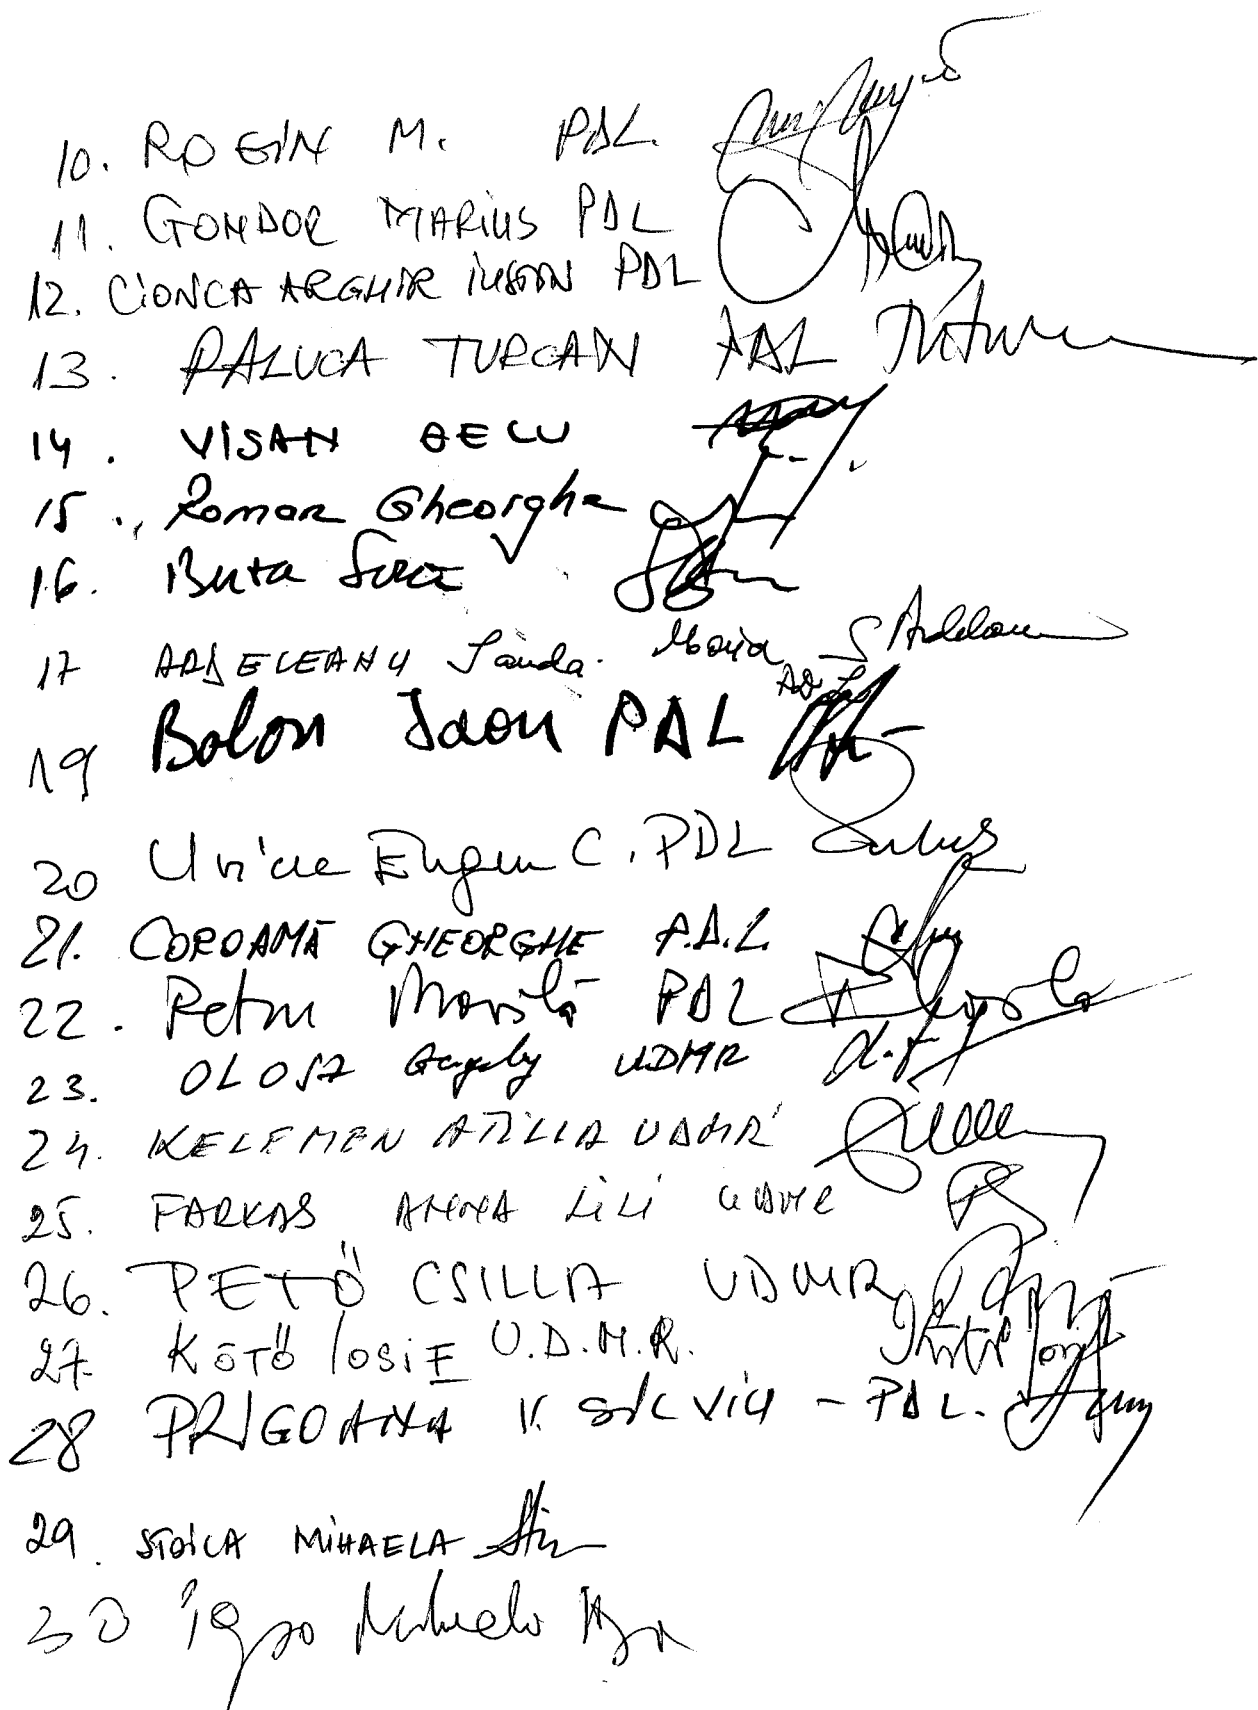 10. ROGIN M. PDL
11. GONDOR MARIUS PDL
12. CIONCA ARGHIR IUSTIN PDL
13. RALUCA TURCAN PDL
14. VISAN GELU
15. Roman Gheorghe
16. Buta
17 ARDELEANU Sanda Maria S Ardeleanu
19 Bolon Ioan PDL
20 Uricec Eugen C. PDL
21. COROAMĂ GHEORGHE P.D.L.
22. Petru Movilă PDL
23. OLOSZ Gergely UDMR
24. KELEMEN ATILLA UDMR
25. FARKAS ANNA LILI UDMR
26. PETŐ CSILLA UDMR
27. KÖTŐ IOSIF U.D.M.R.
28 PRIGOANA V. SILVIU - PDL.
29. STOICA MIHAELA
30